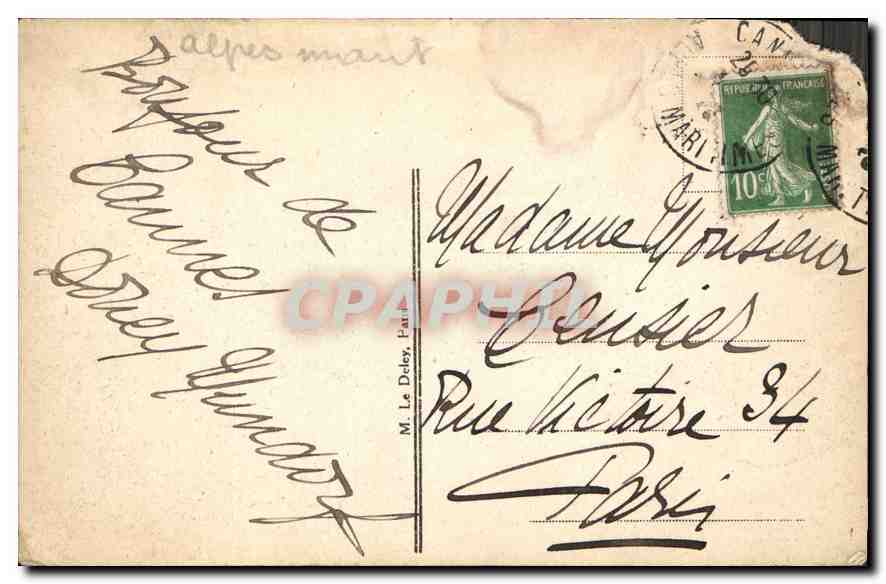 alpes marit
Bonjour de
Cannes
CANN
ALPES MARITIMES
REPUBLIQUE FRANÇAISE
10c
Madame Monsieur
Censier
Rue Victoire 34
Paris
M. Le Deley, Paris
CPAPHIL